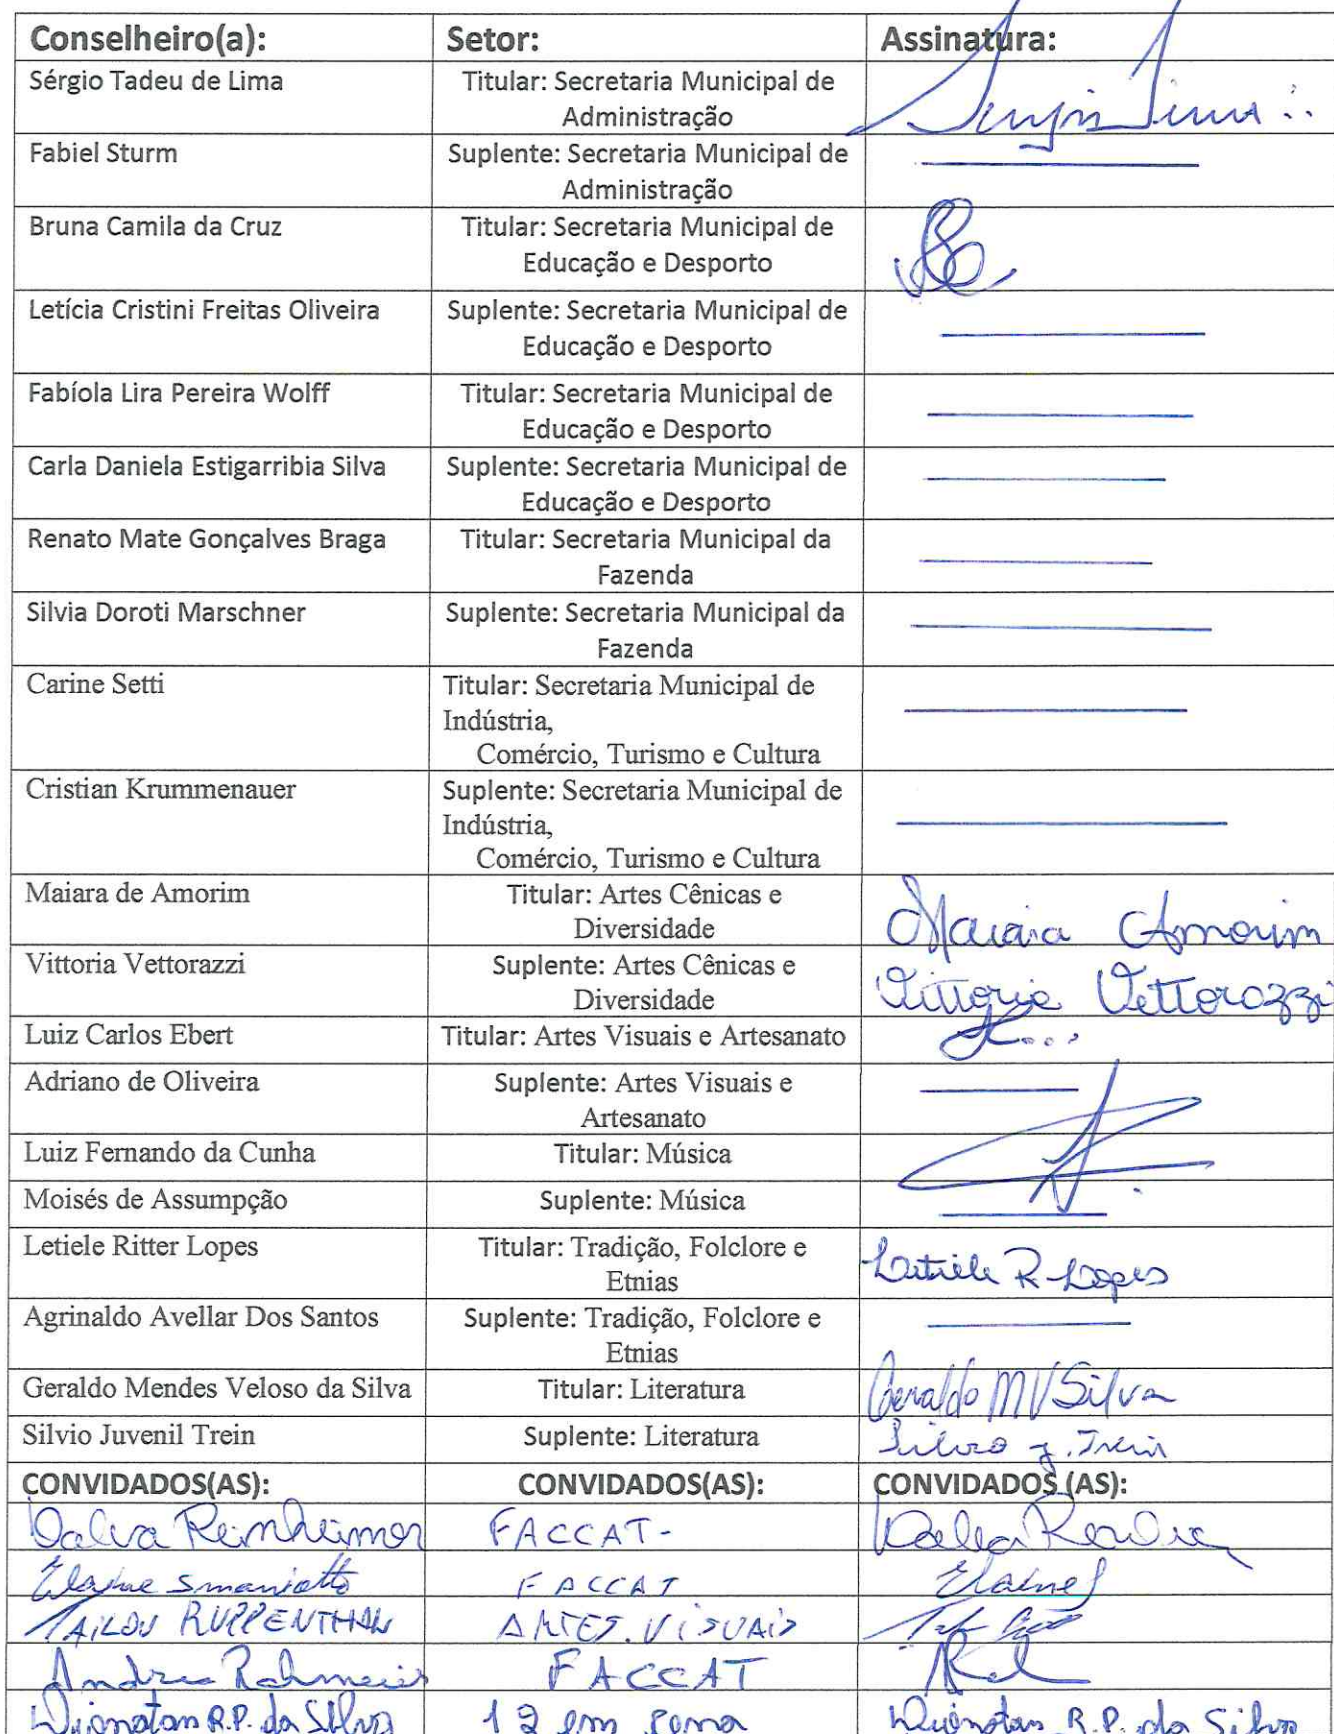 Conselheiro(a): Setor: Assinatura:
Sérgio Tadeu de Lima Titular: Secretaria Municipal de
Administração
Fabiel Sturm Suplente: Secretaria Municipal de
Administração
Bruna Camila da Cruz Titular: Secretaria Municipal de
Educação e Desporto
Letícia Cristini Freitas Oliveira Suplente: Secretaria Municipal de
Educação e Desporto
Fabíola Lira Pereira Wolff Titular: Secretaria Municipal de
Educação e Desporto
Carla Daniela Estigarribia Silva Suplente: Secretaria Municipal de
Educação e Desporto
Renato Mate Gonçalves Braga Titular: Secretaria Municipal da
Fazenda
Silvia Doroti Marschner Suplente: Secretaria Municipal da
Fazenda
Carine Setti Titular: Secretaria Municipal de
Indústria,
Comércio, Turismo e Cultura
Cristian Krummenauer Suplente: Secretaria Municipal de
Indústria,
Comércio, Turismo e Cultura
Maiara de Amorim Titular: Artes Cênicas e Maiara Amorim
Diversidade
Vittoria Vettorazzi Suplente: Artes Cênicas e Vittoria Vettorazzi
Diversidade
Luiz Carlos Ebert Titular: Artes Visuais e Artesanato
Adriano de Oliveira Suplente: Artes Visuais e
Artesanato
Luiz Fernando da Cunha Titular: Música
Moisés de Assumpção Suplente: Música
Letiele Ritter Lopes Titular: Tradição, Folclore e Letiele R. Lopes
Etnias
Agrinaldo Avellar Dos Santos Suplente: Tradição, Folclore e
Etnias
Geraldo Mendes Veloso da Silva Titular: Literatura Geraldo MV Silva
Silvio Juvenil Trein Suplente: Literatura Silvio J. Trein
CONVIDADOS(AS): CONVIDADOS(AS): CONVIDADOS (AS):
Dalva Reinheimer FACCAT-
Elaine Smaniotto FACCAT Elaine
RUPPENTHAL ARTES. VISUAIS
Andrea Rahmeier FACCAT
R.P. da Silva em cena R.P. da Silva